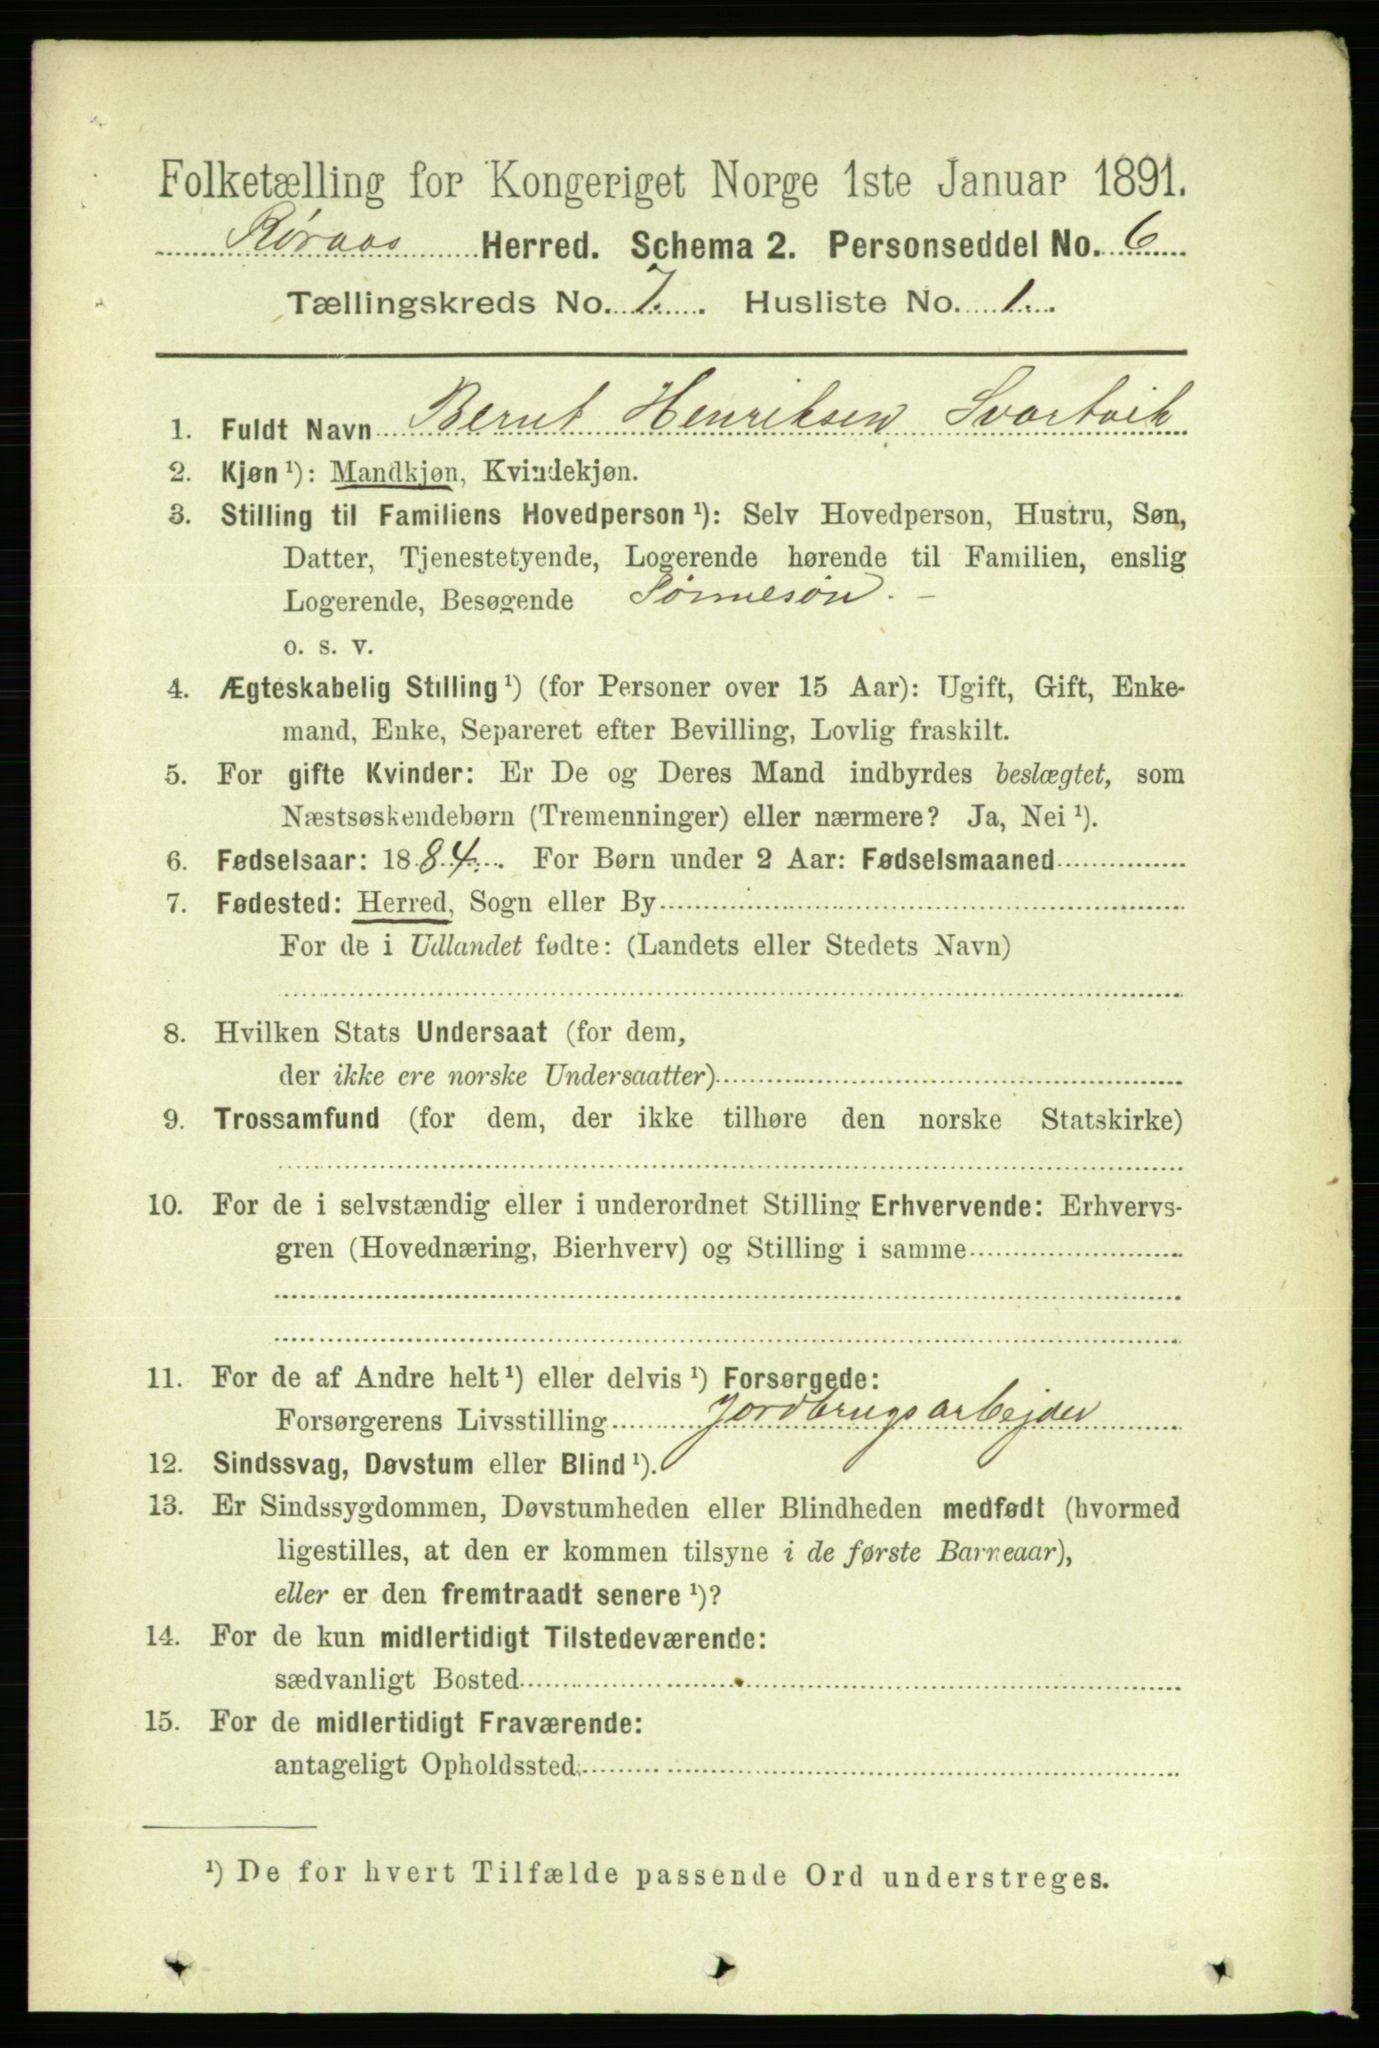 Folketælling for Kongeriget Norge 1ste Januar 1891.
Røraas Herred. Schema 2. Personseddel No. 6
Tællingskreds No. 7. Husliste No. 1.
1. Fuldt Navn Bernt Henriksen Svartvik
2. Kjøn ¹): Mandkjøn, Kvindekjøn.
3. Stilling til Familiens Hovedperson ¹): Selv Hovedperson, Hustru, Søn,
Datter, Tjenestetyende, Logerende hørende til Familien, enslig
Logerende, Besøgende Sønnesøn. –
o. s. v.
4. Ægteskabelig Stilling ¹) (for Personer over 15 Aar): Ugift, Gift, Enke-
mand, Enke, Separeret efter Bevilling, Lovlig fraskilt.
5. For gifte Kvinder: Er De og Deres Mand indbyrdes beslægtet, som
Næstsøskendebørn (Tremenninger) eller nærmere? Ja, Nei ¹).
6. Fødselsaar: 1884. For Børn under 2 Aar: Fødselsmaaned
7. Fødested: Herred, Sogn eller By
For de i Udlandet fødte: (Landets eller Stedets Navn)
8. Hvilken Stats Undersaat (for dem,
der ikke ere norske Undersaatter)
9. Trossamfund (for dem, der ikke tilhøre den norske Statskirke)
10. For de i selvstændig eller i underordnet Stilling Erhvervende: Erhvervs-
gren (Hovednæring, Bierhverv) og Stilling i samme
11. For de af Andre helt ¹) eller delvis ¹) Forsørgede:
Forsørgerens Livsstilling Jordbrugsarbejder
12. Sindssvag, Døvstum eller Blind ¹).
13. Er Sindssygdommen, Døvstumheden eller Blindheden medfødt (hvormed
ligestilles, at den er kommen tilsyne i de første Barneaar),
eller er den fremtraadt senere ¹)?
14. For de kun midlertidigt Tilstedeværende:
sædvanligt Bosted
15. For de midlertidigt Fraværende:
antageligt Opholdssted
¹) De for hvert Tilfælde passende Ord understreges.